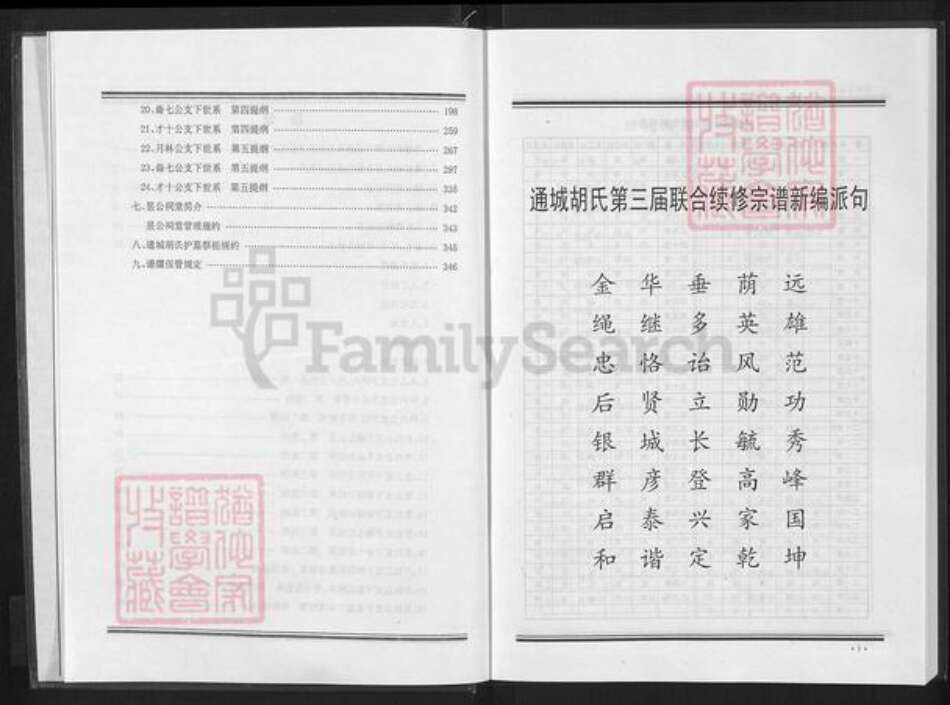 20、奋七公支下世系 第四提纲 198
21、才十公支下世系 第四提纲 259
22、月林公支下世系 第五提纲 267
23、奋七公支下世系 第五提纲 297
24、才十公支下世系 第五提纲 335
七、昱公祠堂简介 342
昱公祠堂管理规约 343
八、通城胡氏护墓祭祖规约 345
九、谱牒保管规定 346
FamilySearch
通城胡氏第三届联合续修宗谱新编派句
金 华 垂 荫 远
绳 继 多 英 雄
忠 恪 诒 风 范
后 贤 立 勋 功
银 城 长 毓 秀
群 彦 登 高 峰
启 泰 兴 家 国
和 谐 定 乾 坤